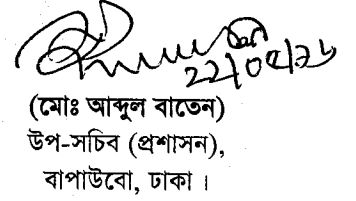 (মোঃ আব্দুল বাতেন)
উপ-সচিব (প্রশাসন),
বাপাউবো, ঢাকা ।